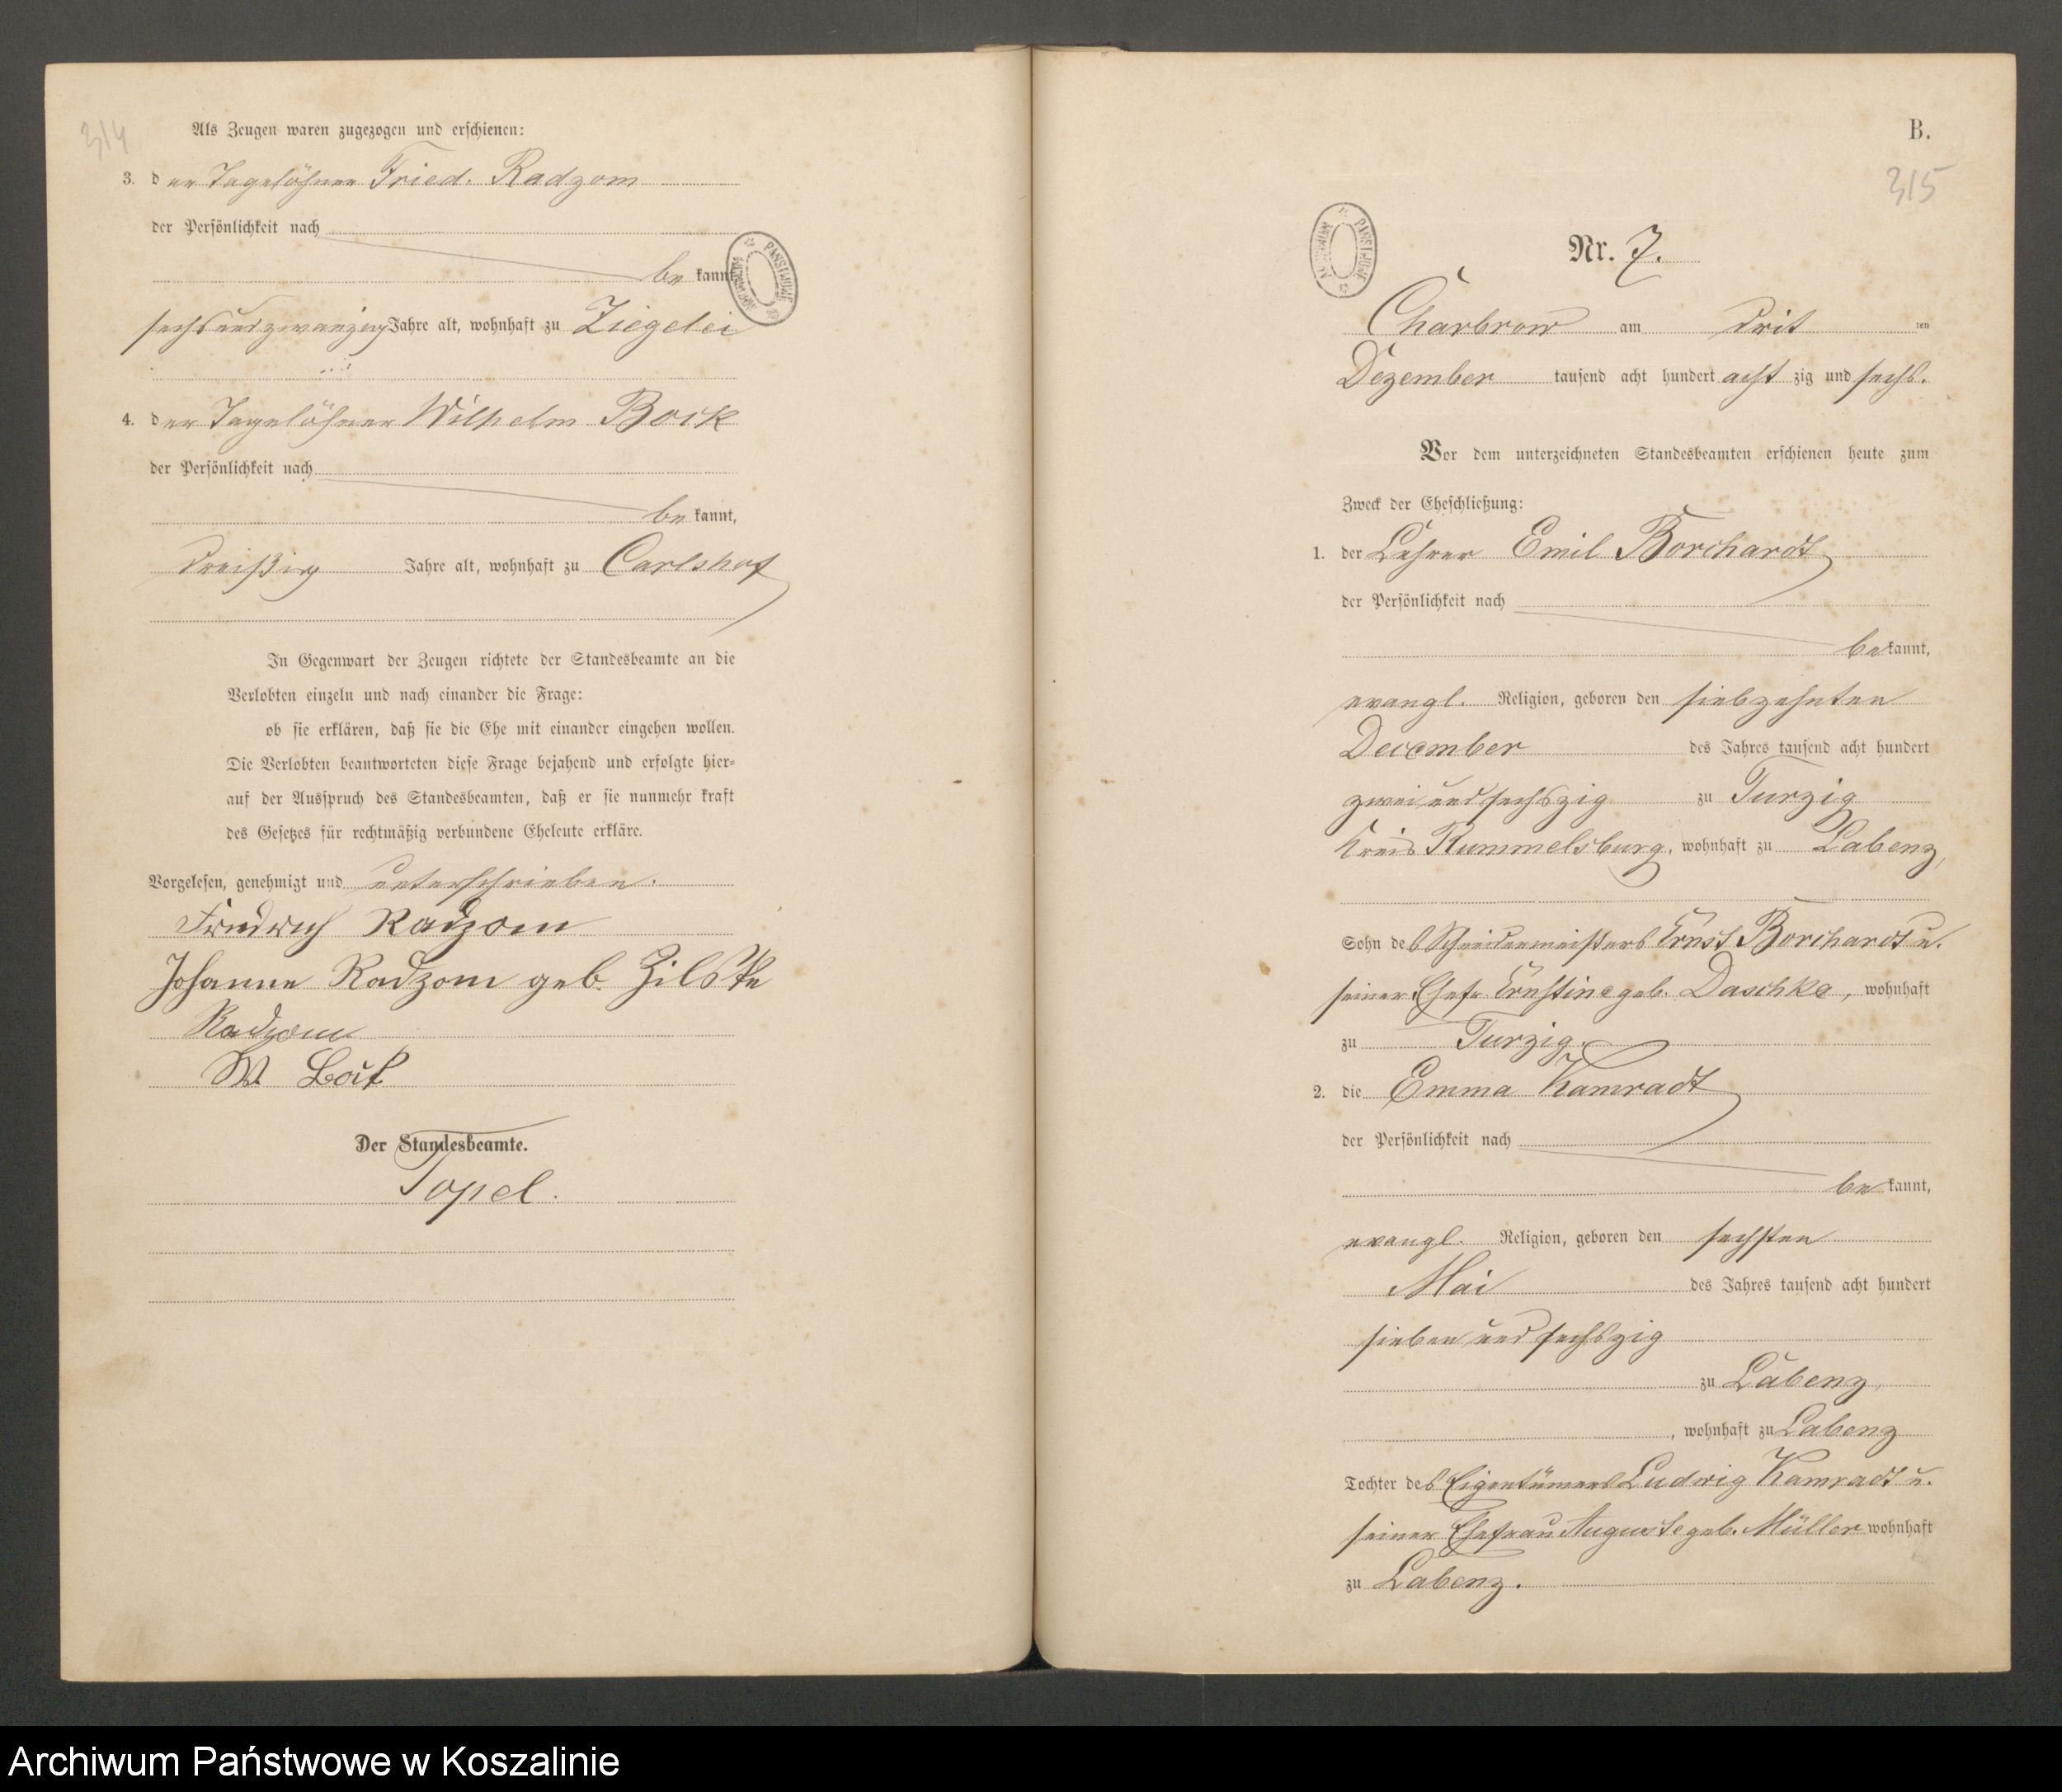 314
Als Zeugen waren zugezogen und erschienen:
3. der Tagelöhner Fried. Radzom
der Persönlichkeit nach
be kannt,
sechsundzwanzig Jahre alt, wohnhaft zu Ziegelei
4. der Tagelöhner Wilhelm Bock
der Persönlichkeit nach
be kannt,
dreißig Jahre alt, wohnhaft zu Carlshof
In Gegenwart der Zeugen richtete der Standesbeamte an die
Verlobten einzeln und nach einander die Frage:
ob sie erklären, daß sie die Ehe mit einander eingehen wollen.
Die Verlobten beantworteten diese Frage bejahend und erfolgte hier-
auf der Ausspruch des Standesbeamten, daß er sie nunmehr kraft
des Gesetzes für rechtmäßig verbundene Eheleute erkläre.
Vorgelesen, genehmigt und unterschrieben.
Friedrich Radzom
Johanne Radzom geb. Zilske
Radzom
W Bock
Der Standesbeamte.
Topel.
B.
315
Nr. 7.
Charbrow am drit ten
Dezember tausend acht hundert acht zig und sechs.
Vor dem unterzeichneten Standesbeamten erschienen heute zum
Zweck der Eheschließung:
1. der Lehrer Emil Borchardt
der Persönlichkeit nach
be kannt,
evangl. Religion, geboren den siebzehnten
December des Jahres tausend acht hundert
zwei und sechszig zu Turzig
Kreis Rummelsburg, wohnhaft zu Labenz,
Sohn des Schneidermeisters Ernst Borchardt u.
seiner Ehefr. Ernstine geb. Daschke, wohnhaft
zu Turzig.
2. die Emma Kamradt
der Persönlichkeit nach
be kannt,
evangl. Religion, geboren den sechsten
Mai des Jahres tausend acht hundert
sieben und sechszig
zu Labenz,
, wohnhaft zu Labenz
Tochter des Eigentümers Ludwig Kamradt u.
seiner Ehefrau Auguste geb. Müller wohnhaft
zu Labenz.
Archiwum Państwowe w Koszalinie